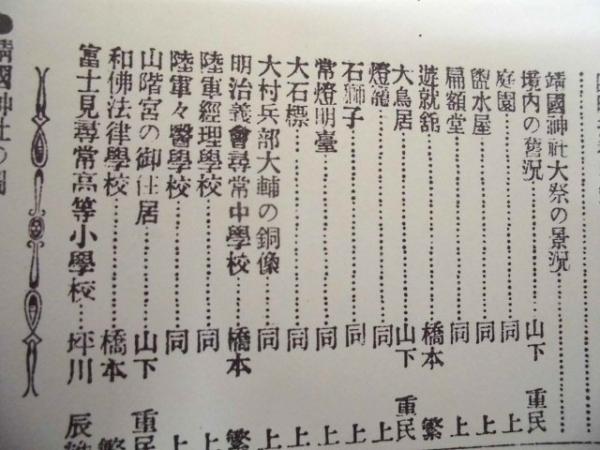 靖國神社大祭の景況
境内の舊況 山下 重民
庭園 同 上
盥水屋 同 上
扁額堂 同 上
遊就舘 橋本 繁
大鳥居 山下 重民
燈籠 同 上
石獅子 同 上
常燈明臺 同 上
大石標 同 上
大村兵部大輔の銅像 同 上
明治義會尋常中學校 橋本 繁
陸軍經理學校 同 上
陸軍々醫學校 同 上
山階宮の御住居 山下 重民
和佛法律學校 橋本 繁
富士見尋常高等小學校 坪川 辰
靖國神社の圖